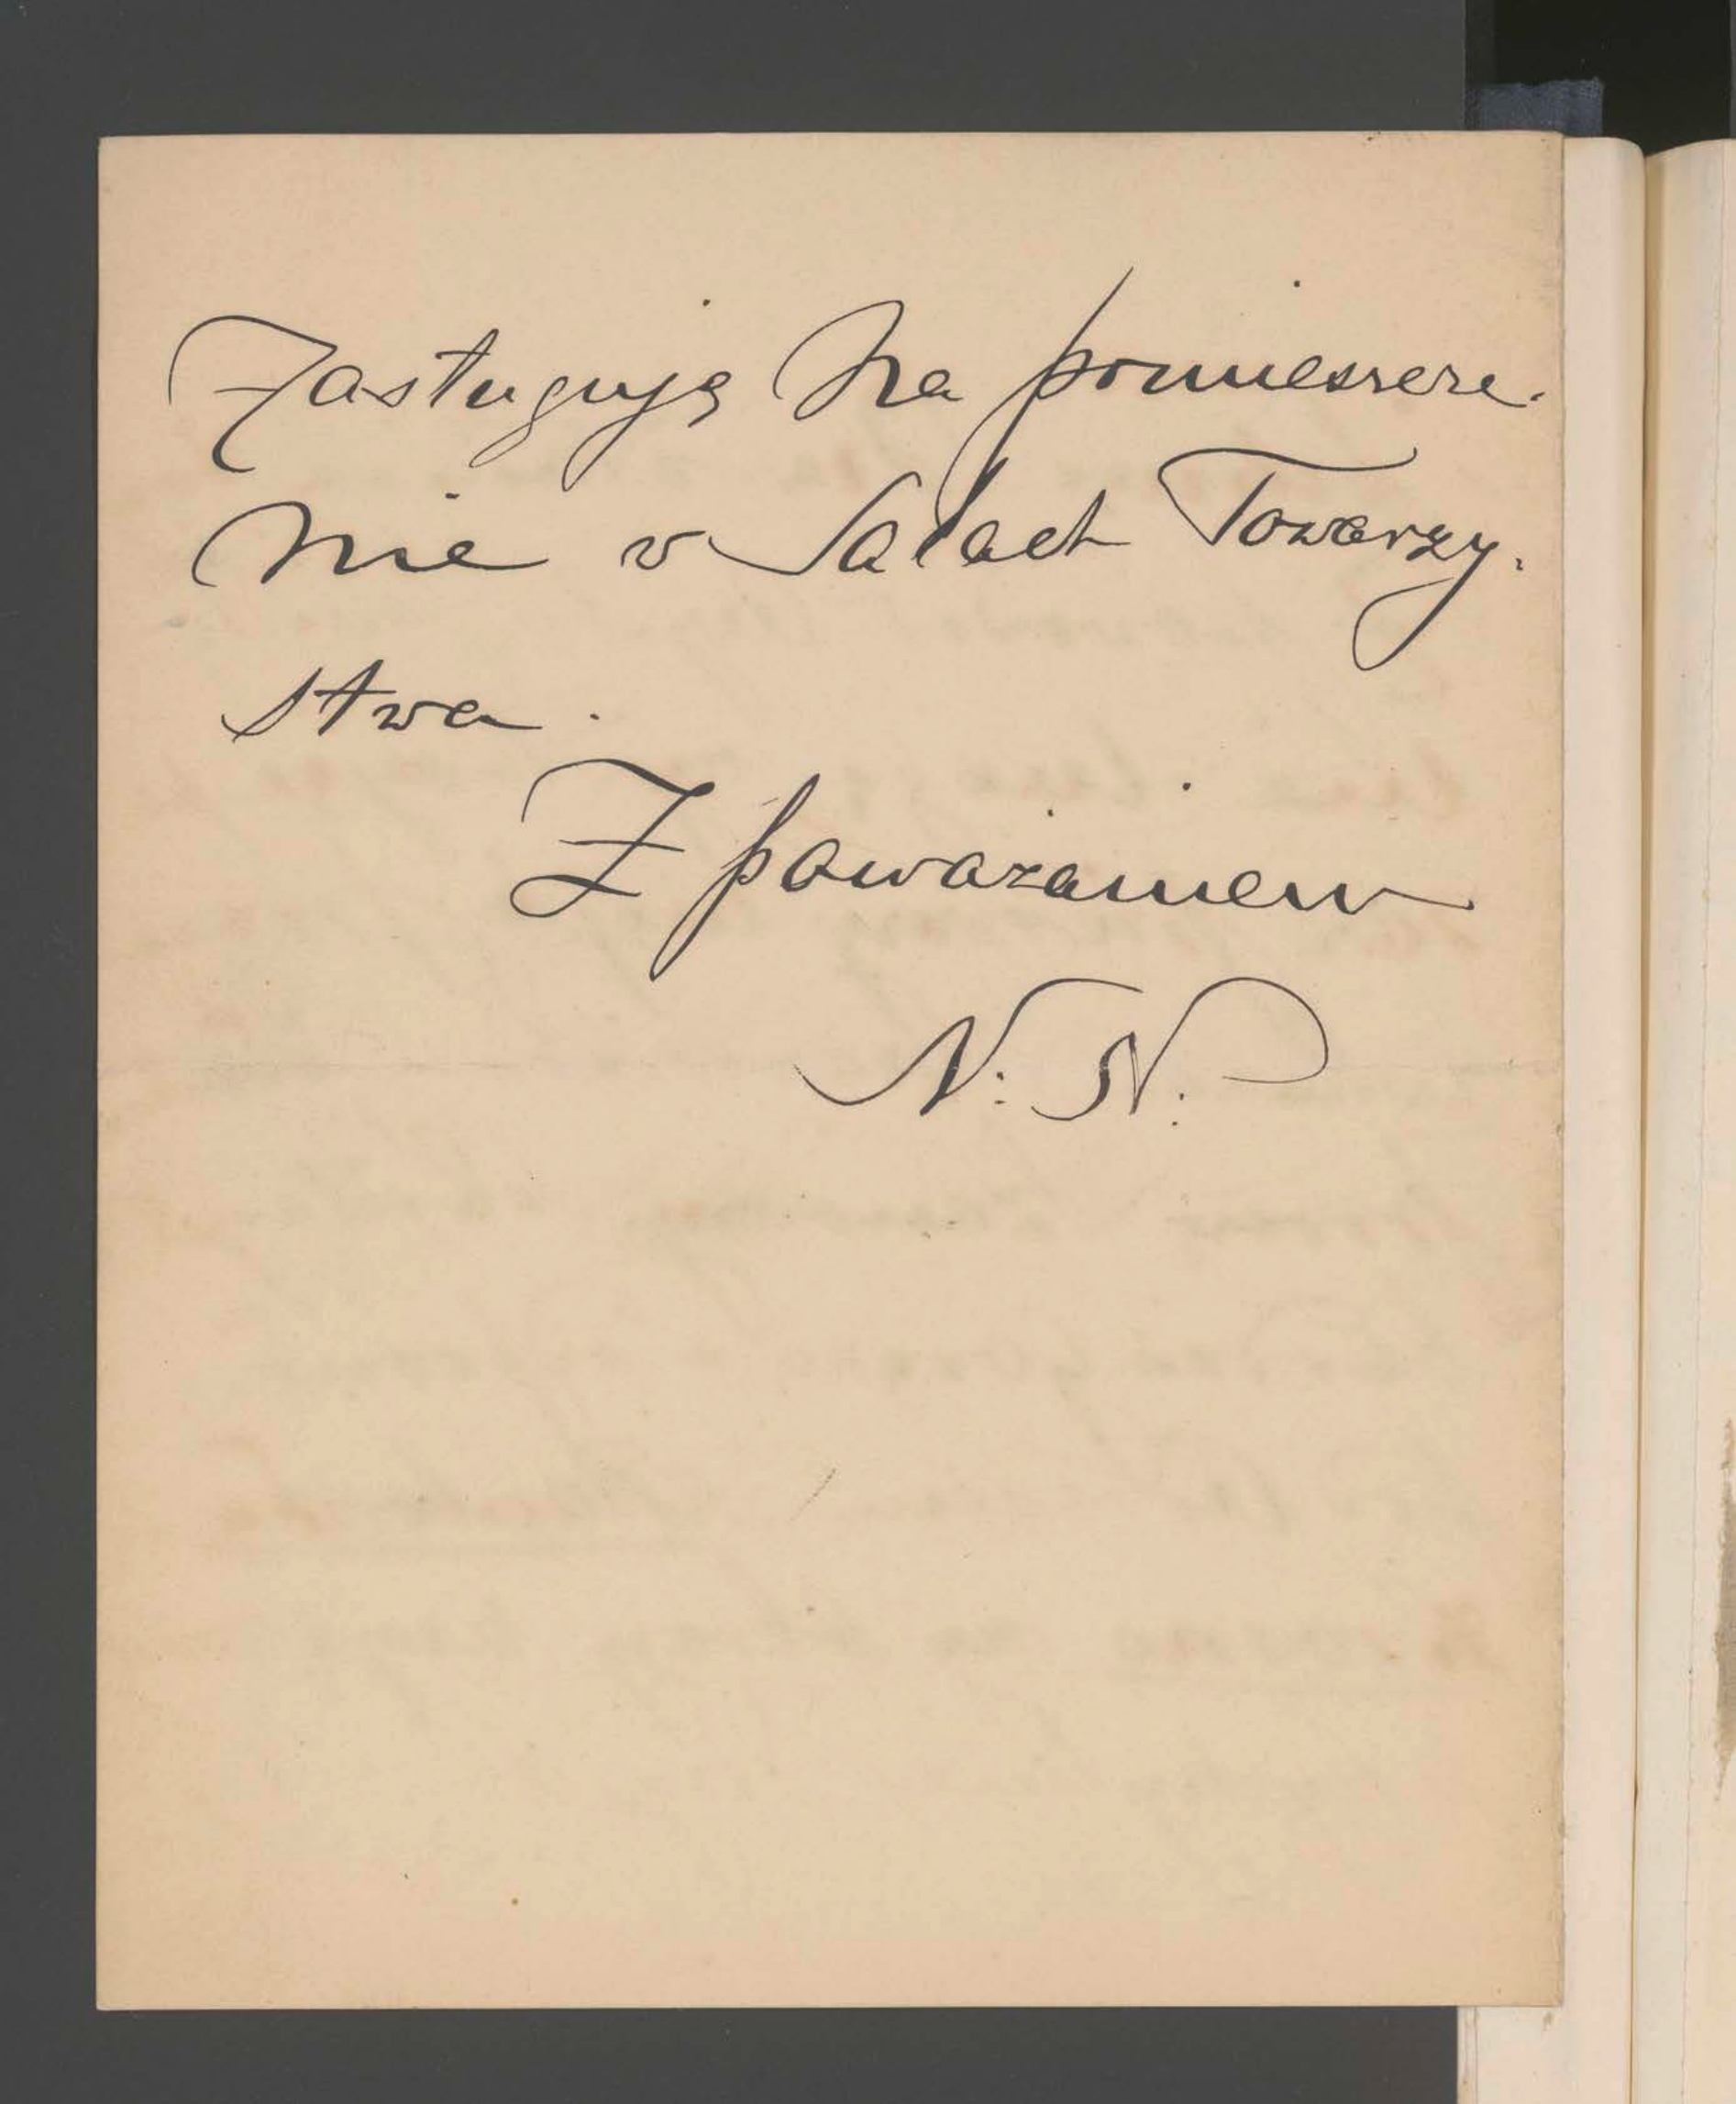 Zasługują na pomieszcze-
nie w Salach Towarzy-
stwa.
Z poważaniem
N. N.